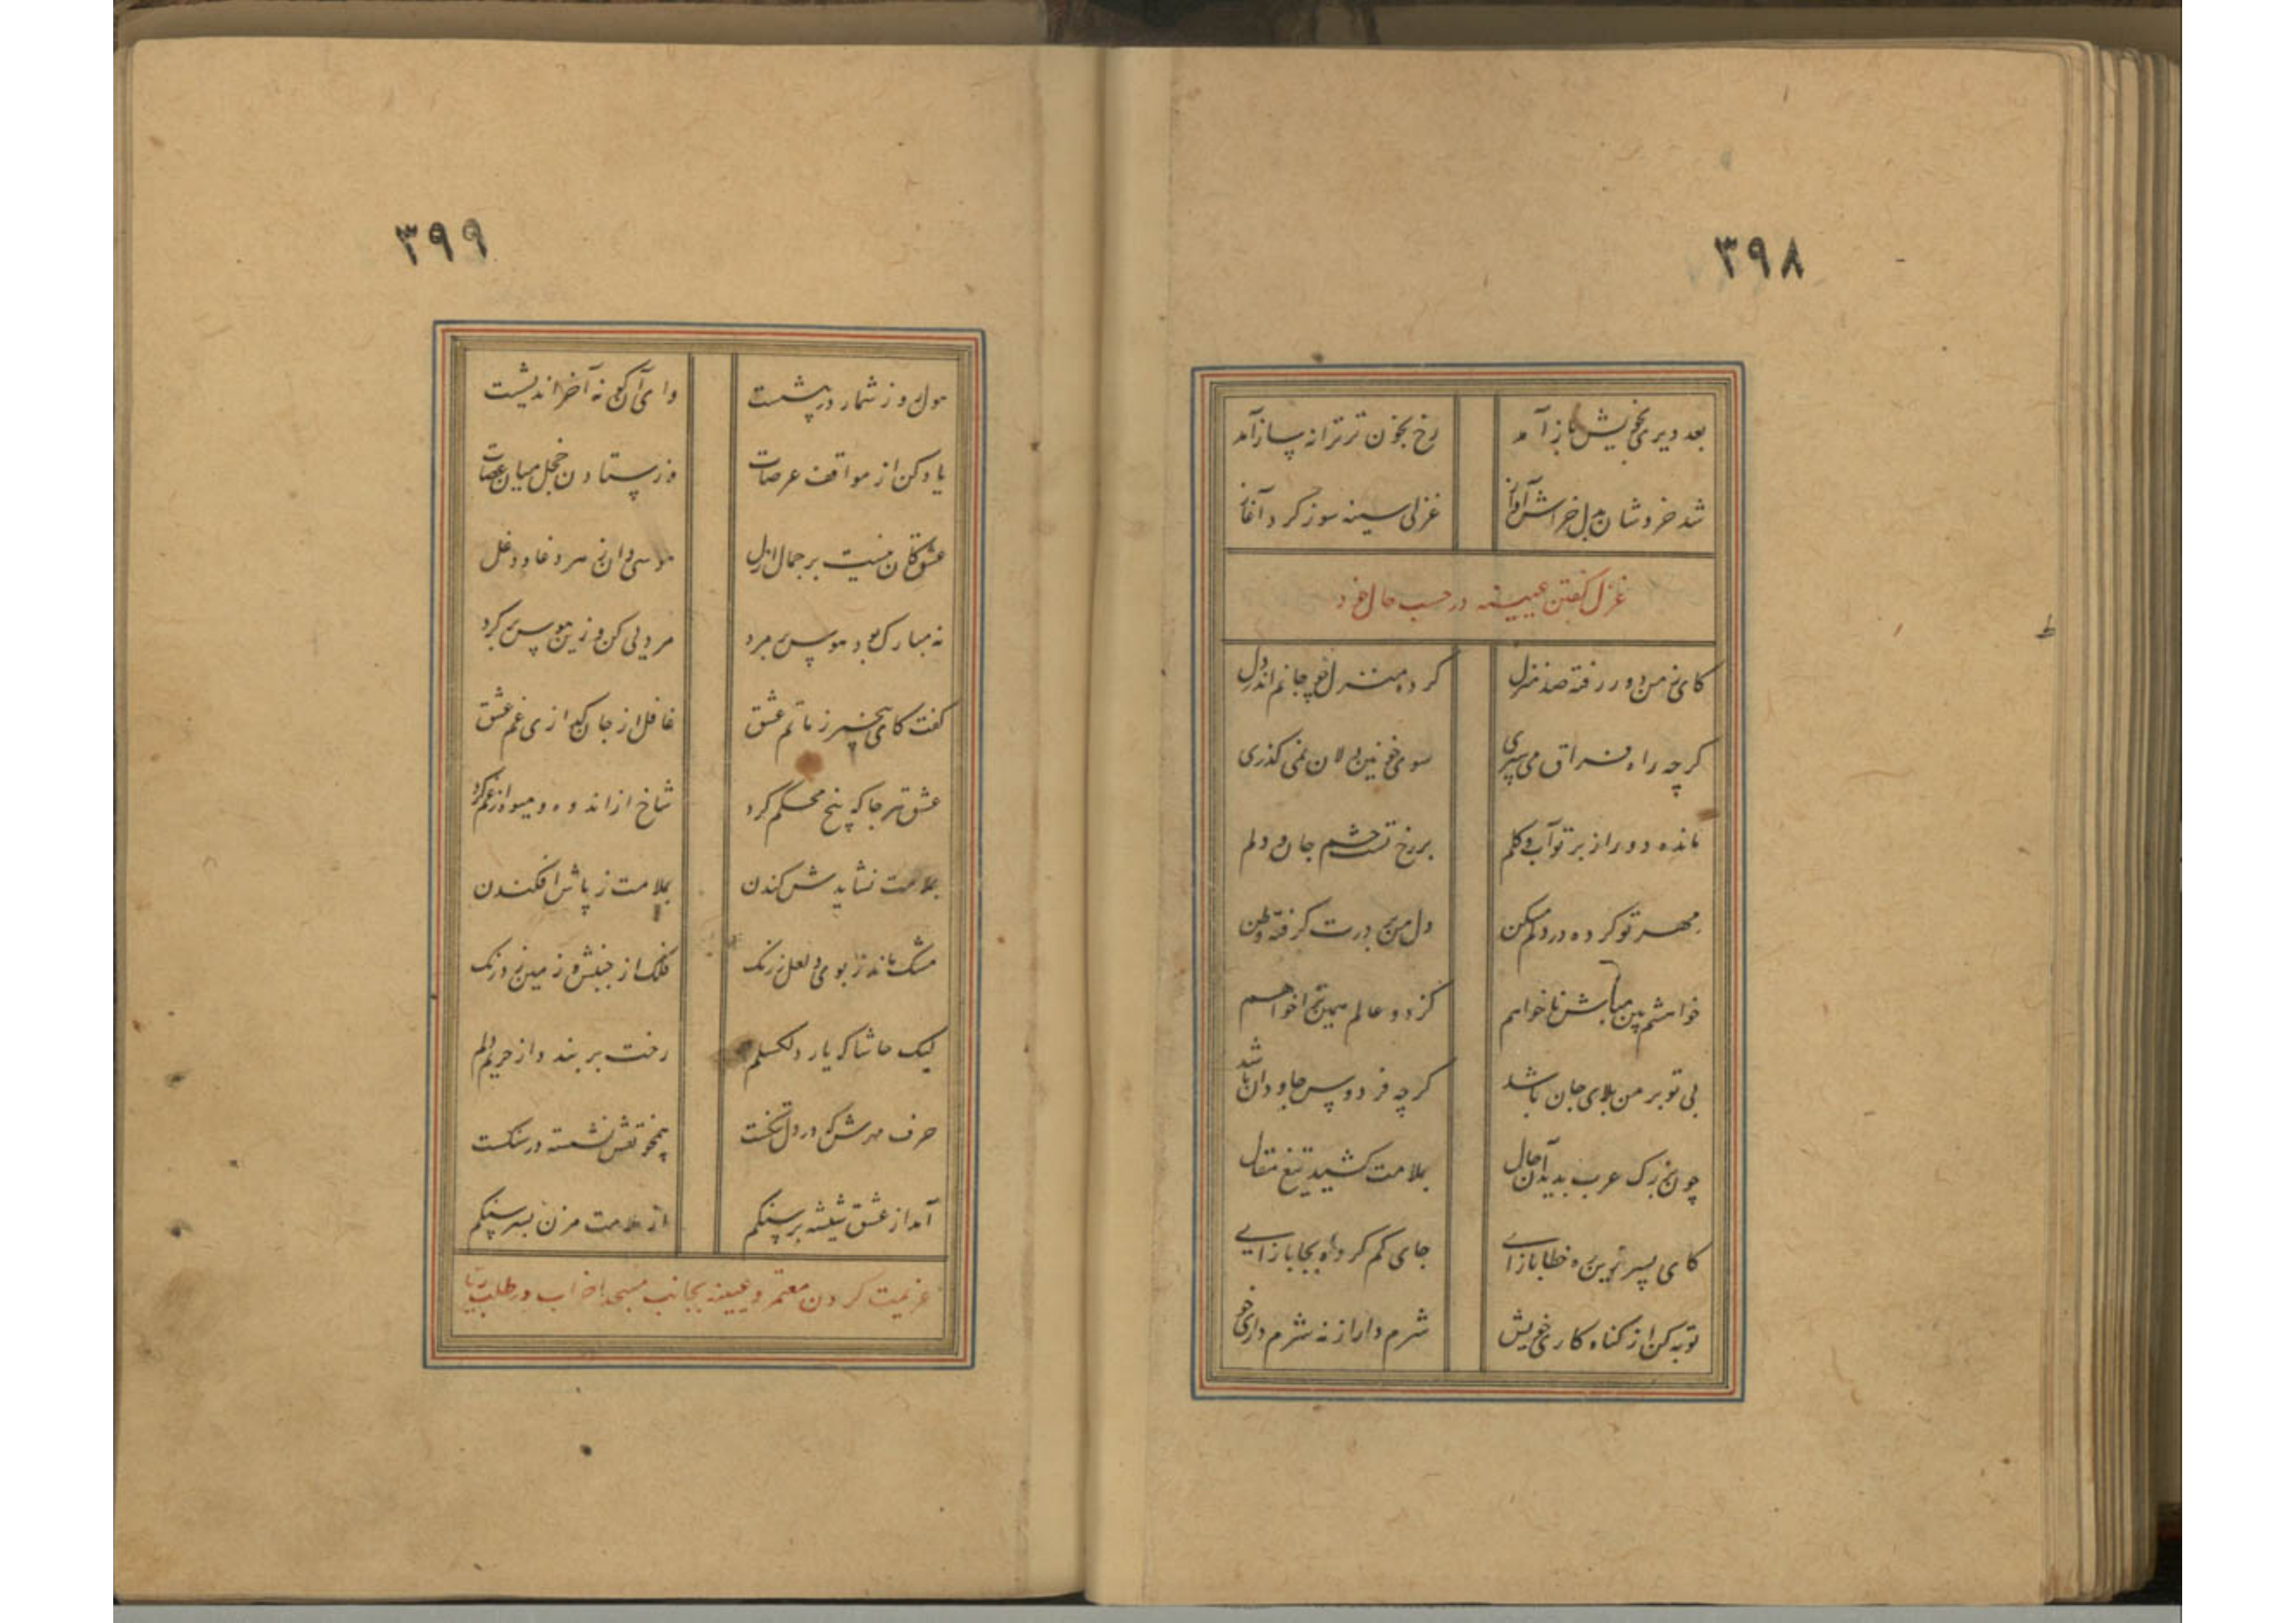 ۳۹۸
بعد دیری بخویش باز آمد رخ بخون تر ترانه ساز آمد
شد خروشان بدل خراش آواز غزلی سینه سوز کرد آغاز
غزل گفتن عیینه در حسب حال خود
کای ز من دور رفته صد منزل کرده منزل چو جانم اندر دل
گرچه راه فراق می سپری سوی خونین دلان نمی گذری
مانده دور از بر تو آب و گلم بر رخ تست چشم جان و دلم
مهر تو کرده در دلم مسکن دل من بر درت گرفته وطن
خواهشم بین مباش ناخواهم کز دو عالم همین ترا خواهم
بی تو بر من بلای جان باشد گرچه فردوس جاودان باشد
چون بزرگ عرب بدید آن حال بملامت کشید تیغ مقال
کای پسر زین ره خطا بازآی جای گم کرده بجا بازآیی
توبه کن از گناه کاری خویش شرم دار از نه شرم داری خویش
۳۹۹
هول روز شمار در پیشست وای آن کو نه آخر اندیشست
یاد کن از مواقف عرصات وز ستادن خجل میان عصات
عشق کان نیست بر جمال ازل هوسی دان سر دغا و دغل
نه مبارک بود هوس بر مرد مردیی کن وزین هوس برگرد
گفت کای بی خبر ز ماتم عشق غافل از جان گدازی غم عشق
عشق هر جا که بیخ محکم کرد شاخ از اندوه و میوه از غم کرد
بملامت نشایدش کندن بملامت ز پاش افکندن
مشک ماند ز بوی و لعل ز رنگ فلک از جنبش و زمین ز درنگ
لیک حاشا که یار دلگسلم رخت بربندد از حریم دلم
حرف مهرش که در دل تنگست همچو نقش نشسته در سنگست
آمد از عشق شیشه بر سنگم از ملامت مزن بسر سنگم
عزیمت کردن معتمر و عیینه بجانب مسجد احزاب در طلب ریا